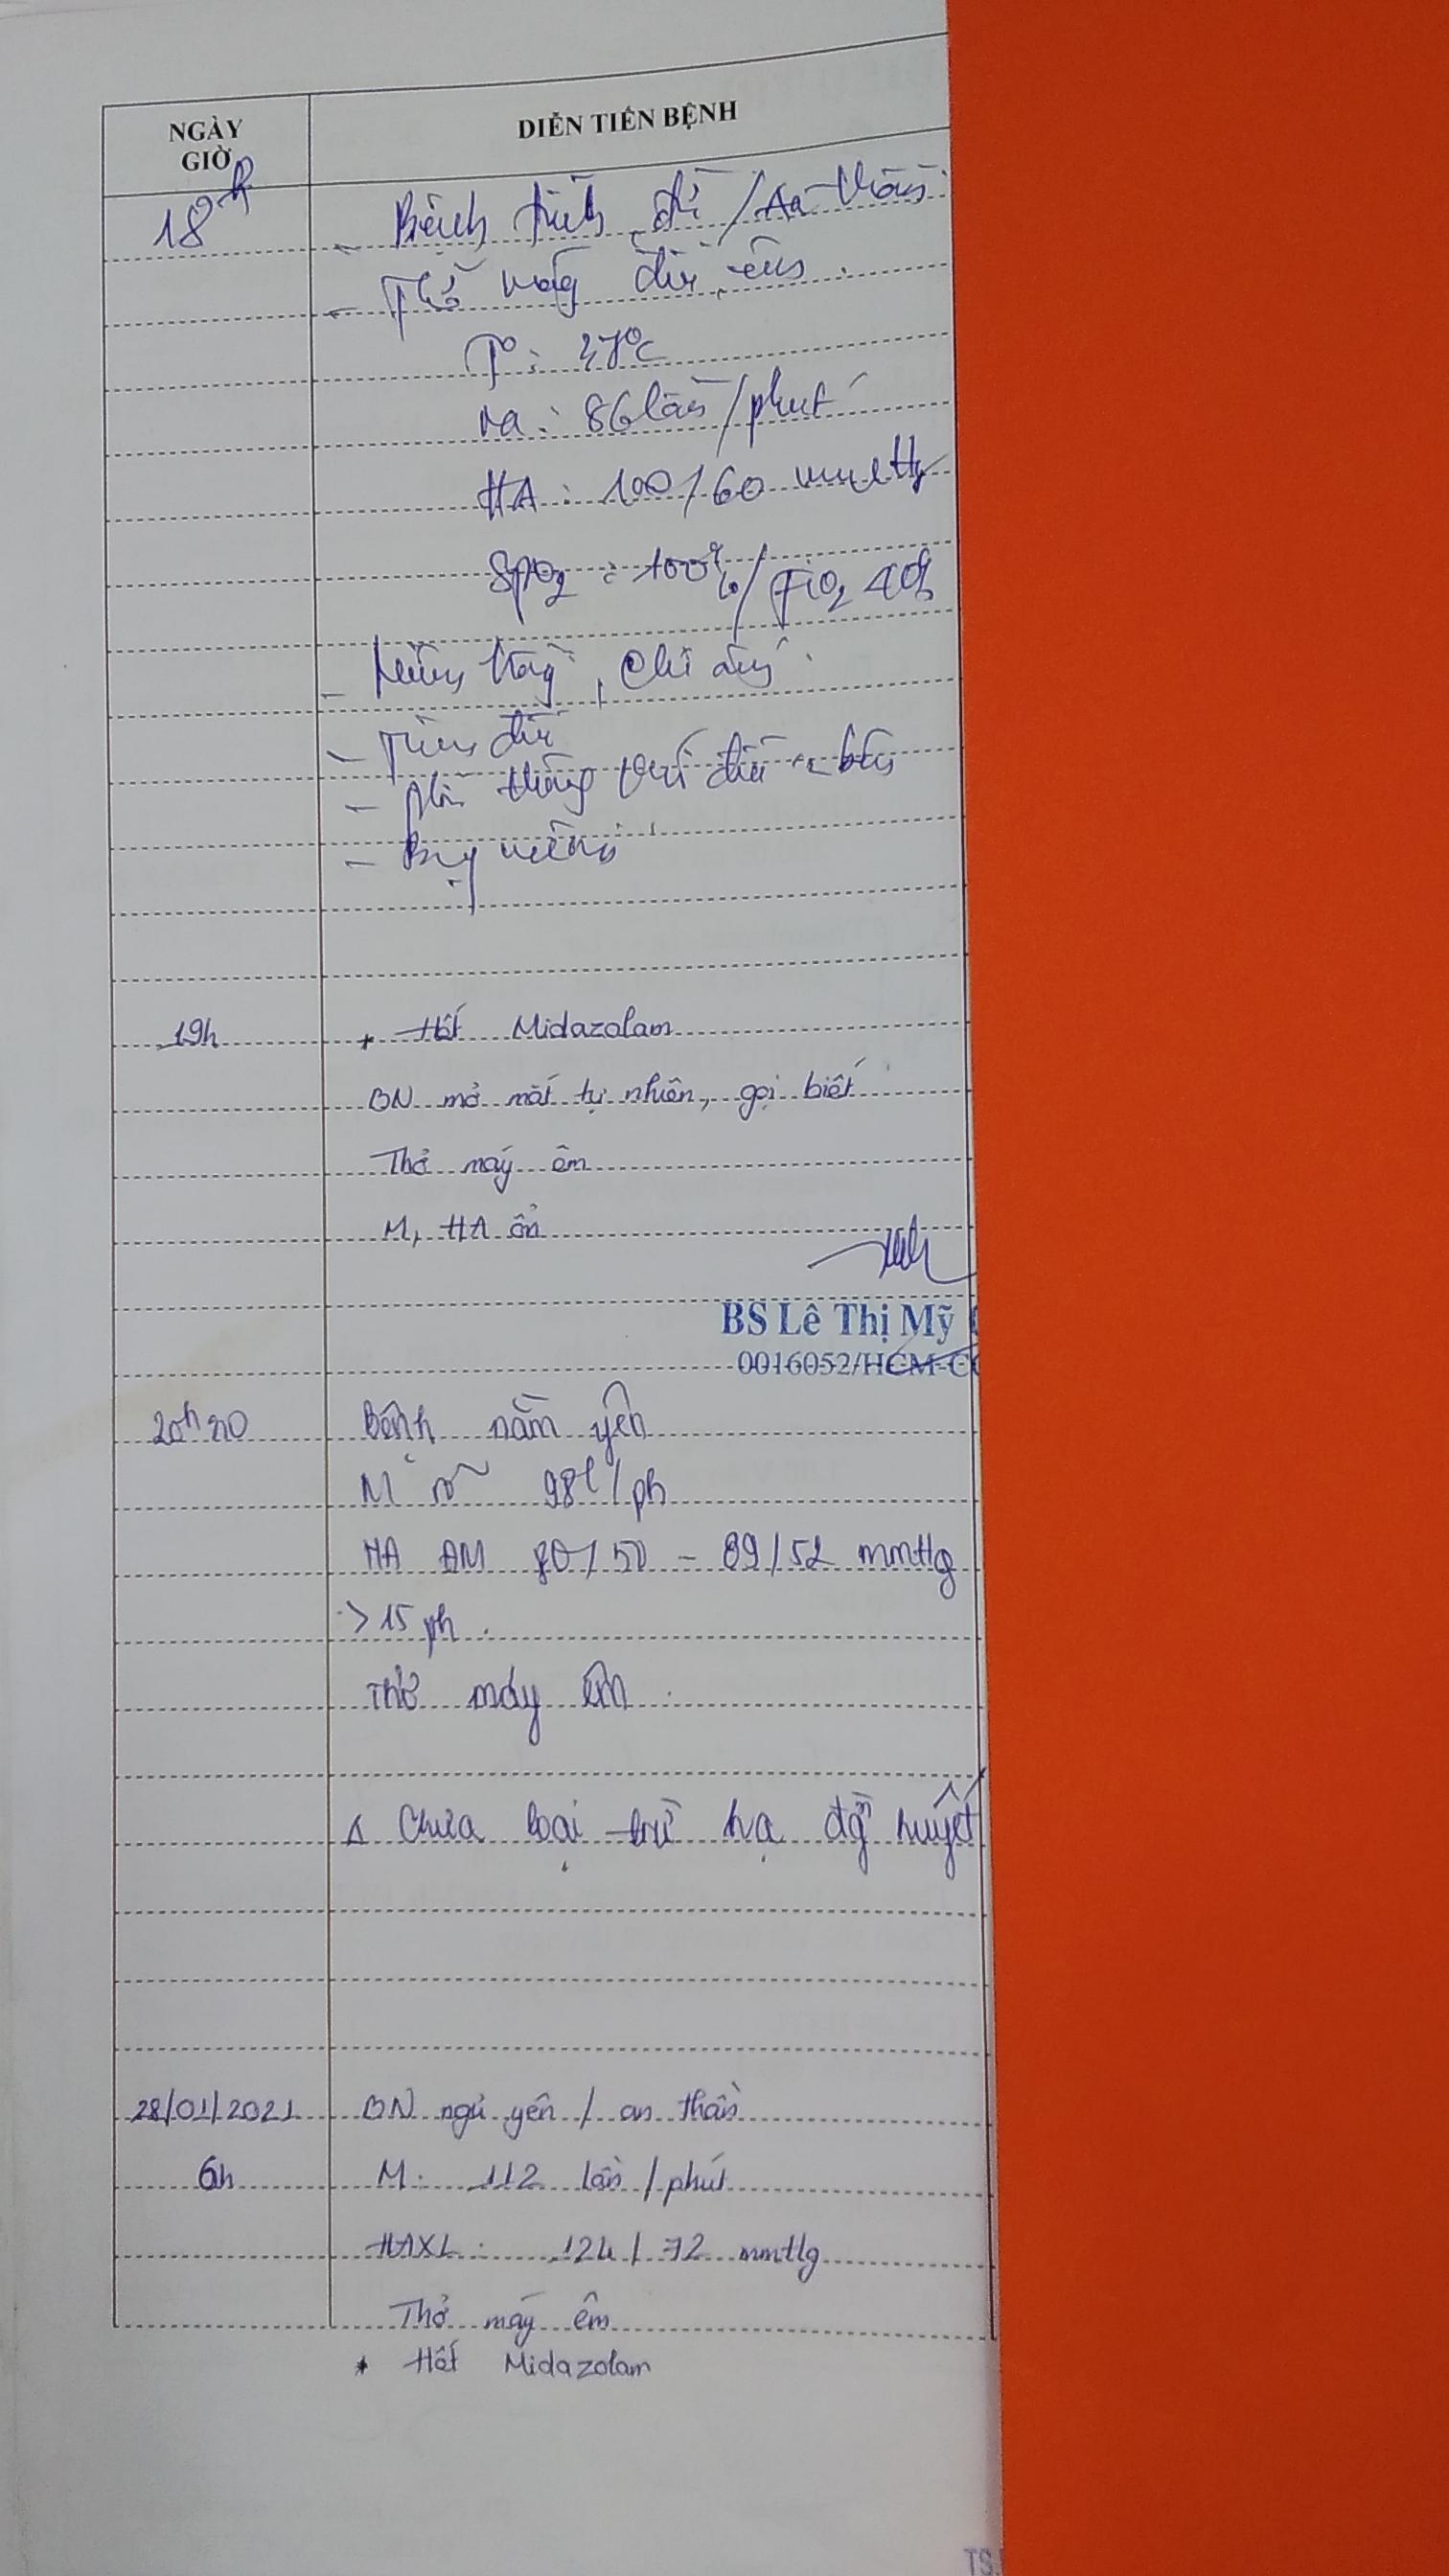 NGÀY
GIỜ
DIỄN TIẾN BỆNH
18h
- Bệnh
- Thở máy
T°: 37°C
Ma: 86 lần/phút
HA: 100/60 mmHg
SpO2: 100%/FiO2 40%
- hồng, Chi ấm
- Tim đều
- Phổi thông khí đều 2 bên
- Bụng mềm
19h
* Hết Midazolam
BN mở mắt tự nhiên, gọi biết
Thở máy êm
M, HA ổn
BS Lê Thị Mỹ
0016052/HCM-C
20h20
Bệnh nằm yên
M rõ 98l/ph
HA ĐM 80/50 - 89/52 mmHg
> 15 ph.
Thở máy êm
Δ Chưa loại trừ hạ đg huyết
28/01/2021
BN ngủ yên / an thần
6h
M: 112 lần/phút
HAXL: 124/72 mmHg
Thở máy êm
* Hết Midazolam
TS.